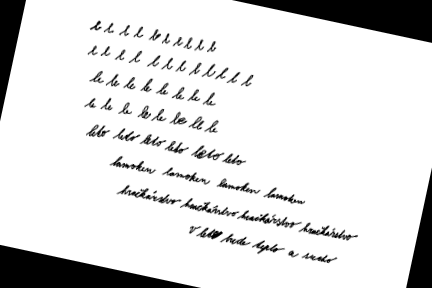 l l l l l l l l l l
l l l l l l l l l l l l
le le le le le le le le
le le le le le le le le
leto leto leto leto leto leto
hračkárstvo hračkárstvo hračkárstvo hračkárstvo
V lete bude teplo a sucho